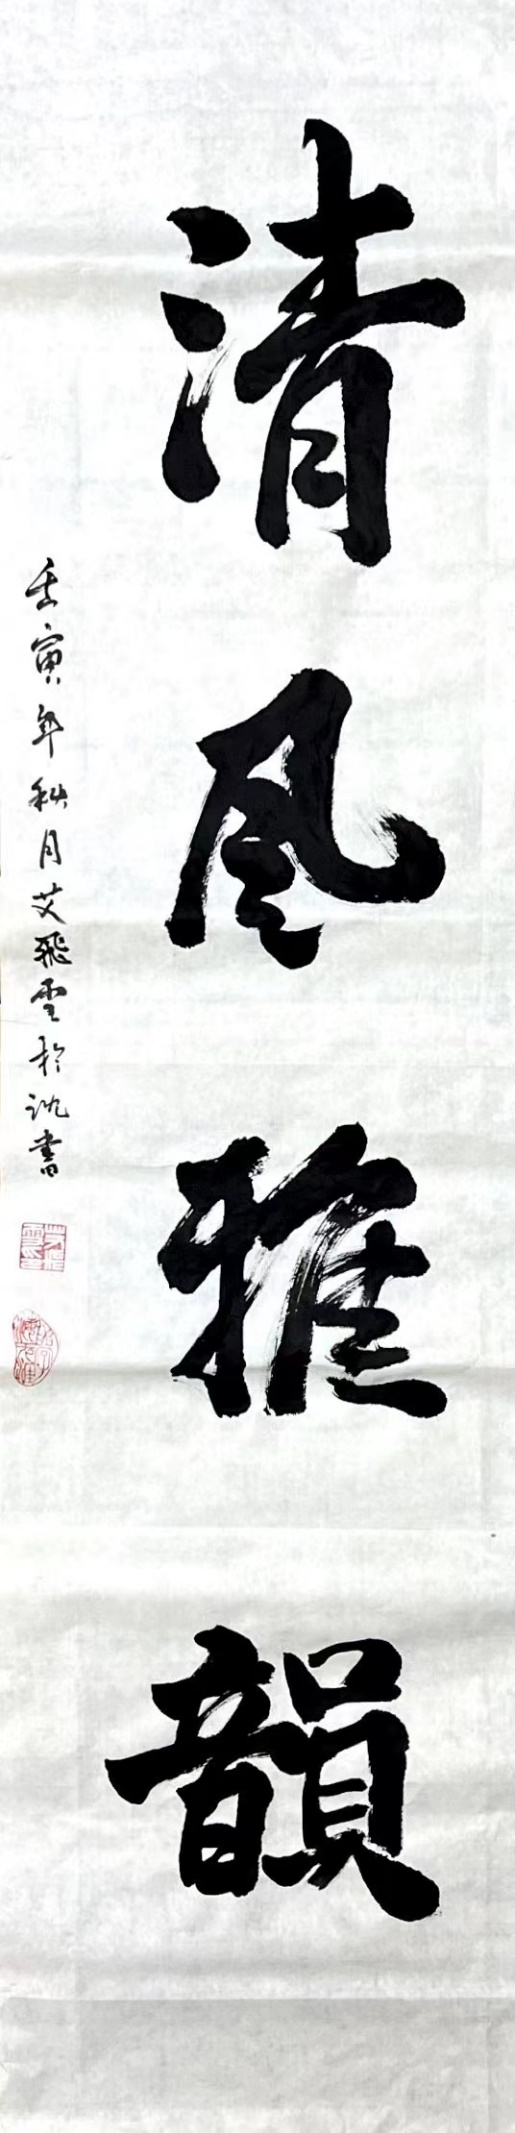 清风雅韻
壬寅年秋月艾飛雲於沈書